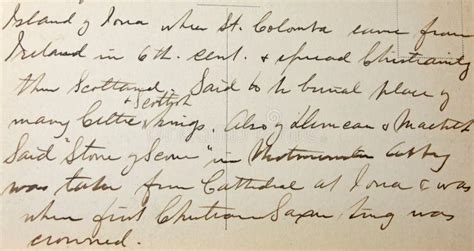 Island of Iona where St. Colomba came from
Ireland in 6th. cent. & spread Christianity
thru Scotland. Said to be burial place of
many Celtic & Scottish kings. Also of Duncan & Macbeth
Said "Stone of Scone" in Westminster Abbey
was taken from Cathedral at Iona & was
when first Christian Saxon king was
crowned.